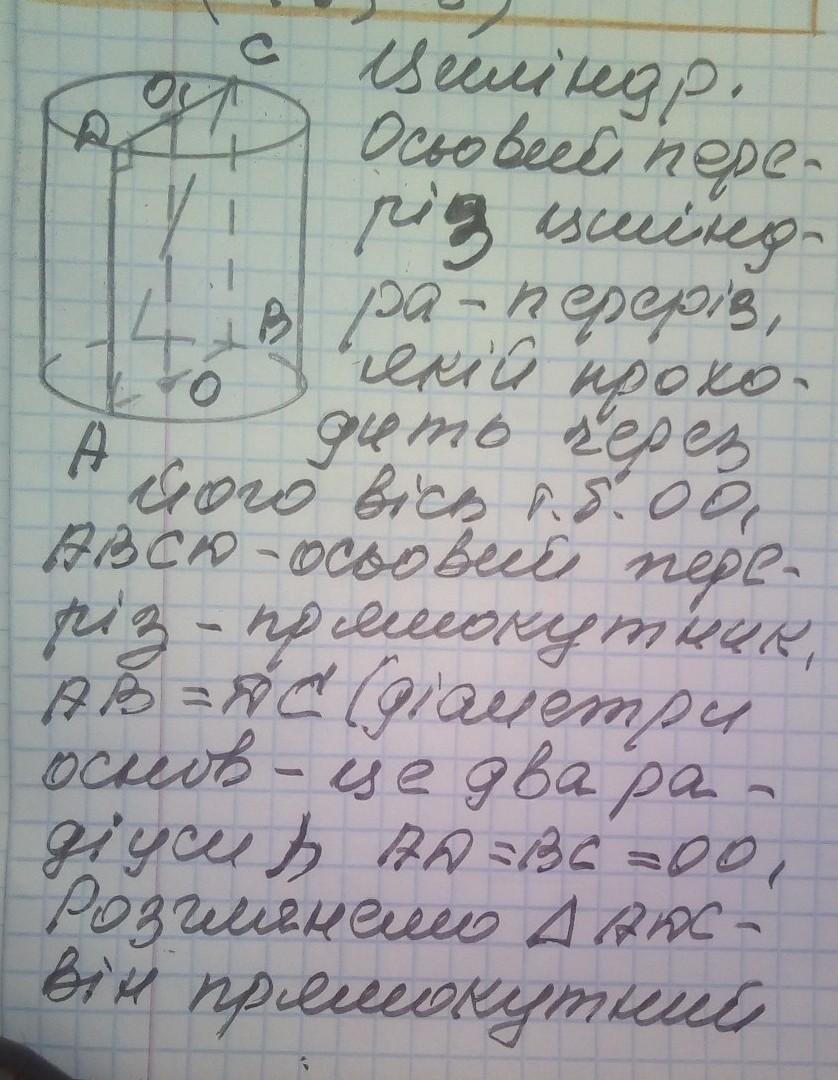 C
O₁
D
B
O
A
Циліндр.
Осьовий пере-
різ цилінд-
ра - переріз,
якій прохо-
дить через
його вісь т.б. OO₁
ABCD - осьовий пере-
різ - прямокутник,
AB = DC (діаметри
основ - це два ра-
діуси), AD = BC = OO₁
Розглянемо Δ ADC -
він прямокутний